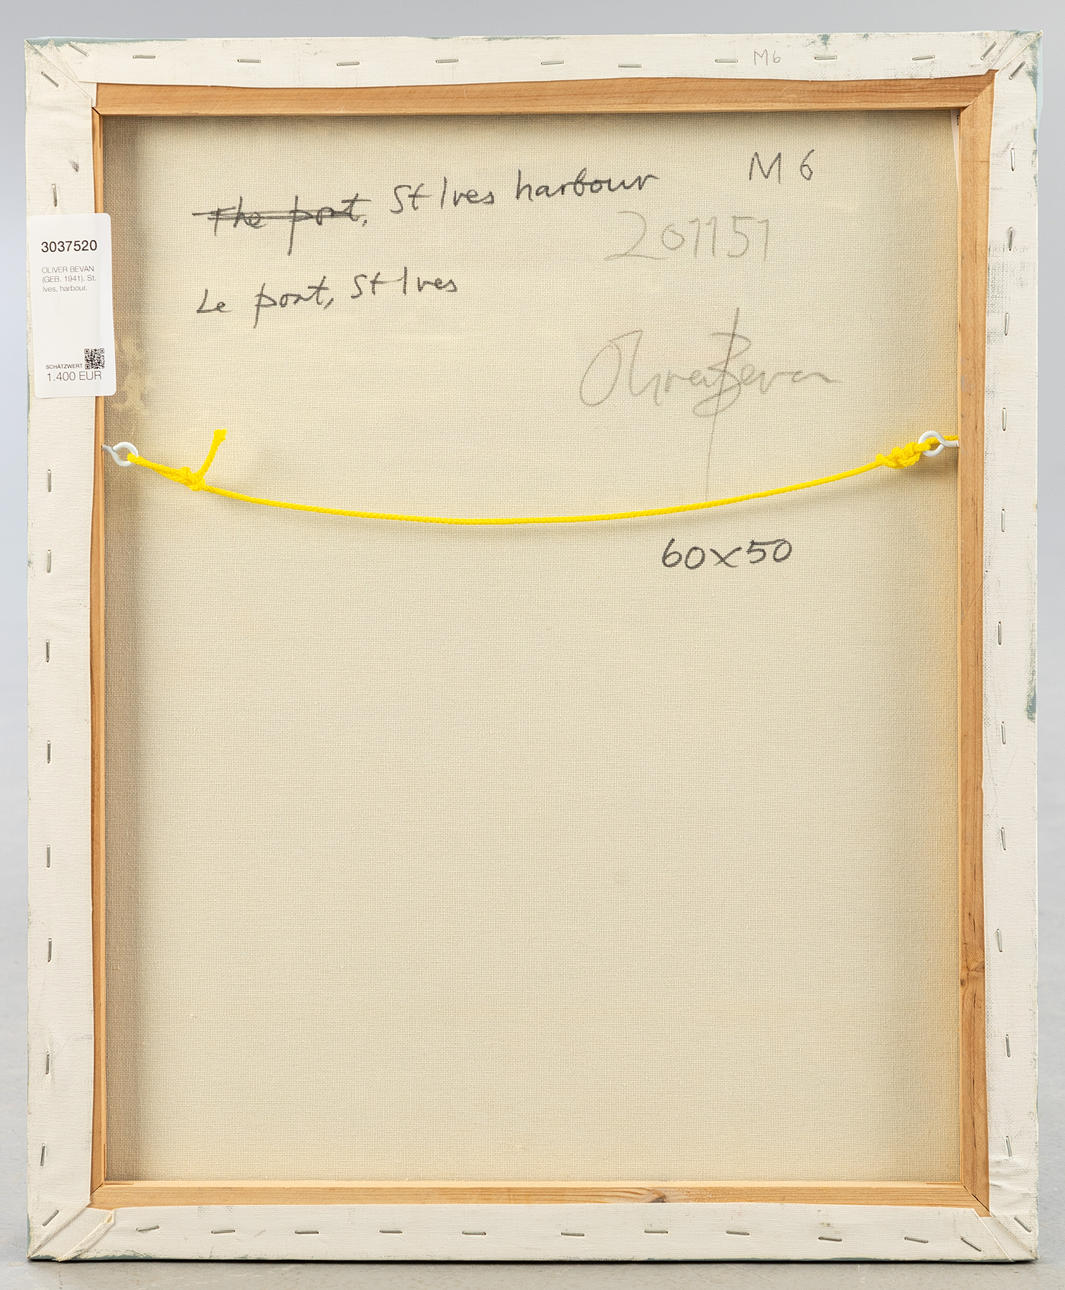 M6
The port, St Ives harbour
M 6
201151
Le port, St Ives
Oliver Bevan
60x50
3037520
OLIVER BEVAN
(GEB. 1941). St.
Ives, harbour.
SCHÄTZWERT
1.400 EUR